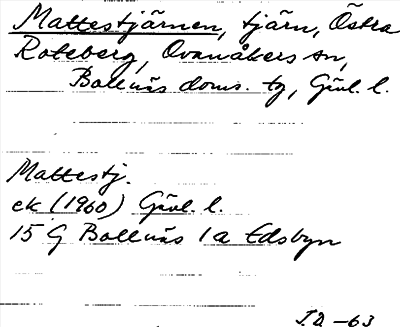 Mattestjärnen, tjärn, Östra
Roteberg, Ovanåkers sn,
Bollnäs doms. tg, Gävl. l.
Mattestj.
ek (1960) Gävl. l.
15 G Bollnäs 1a Edsbyn
I.D. -63